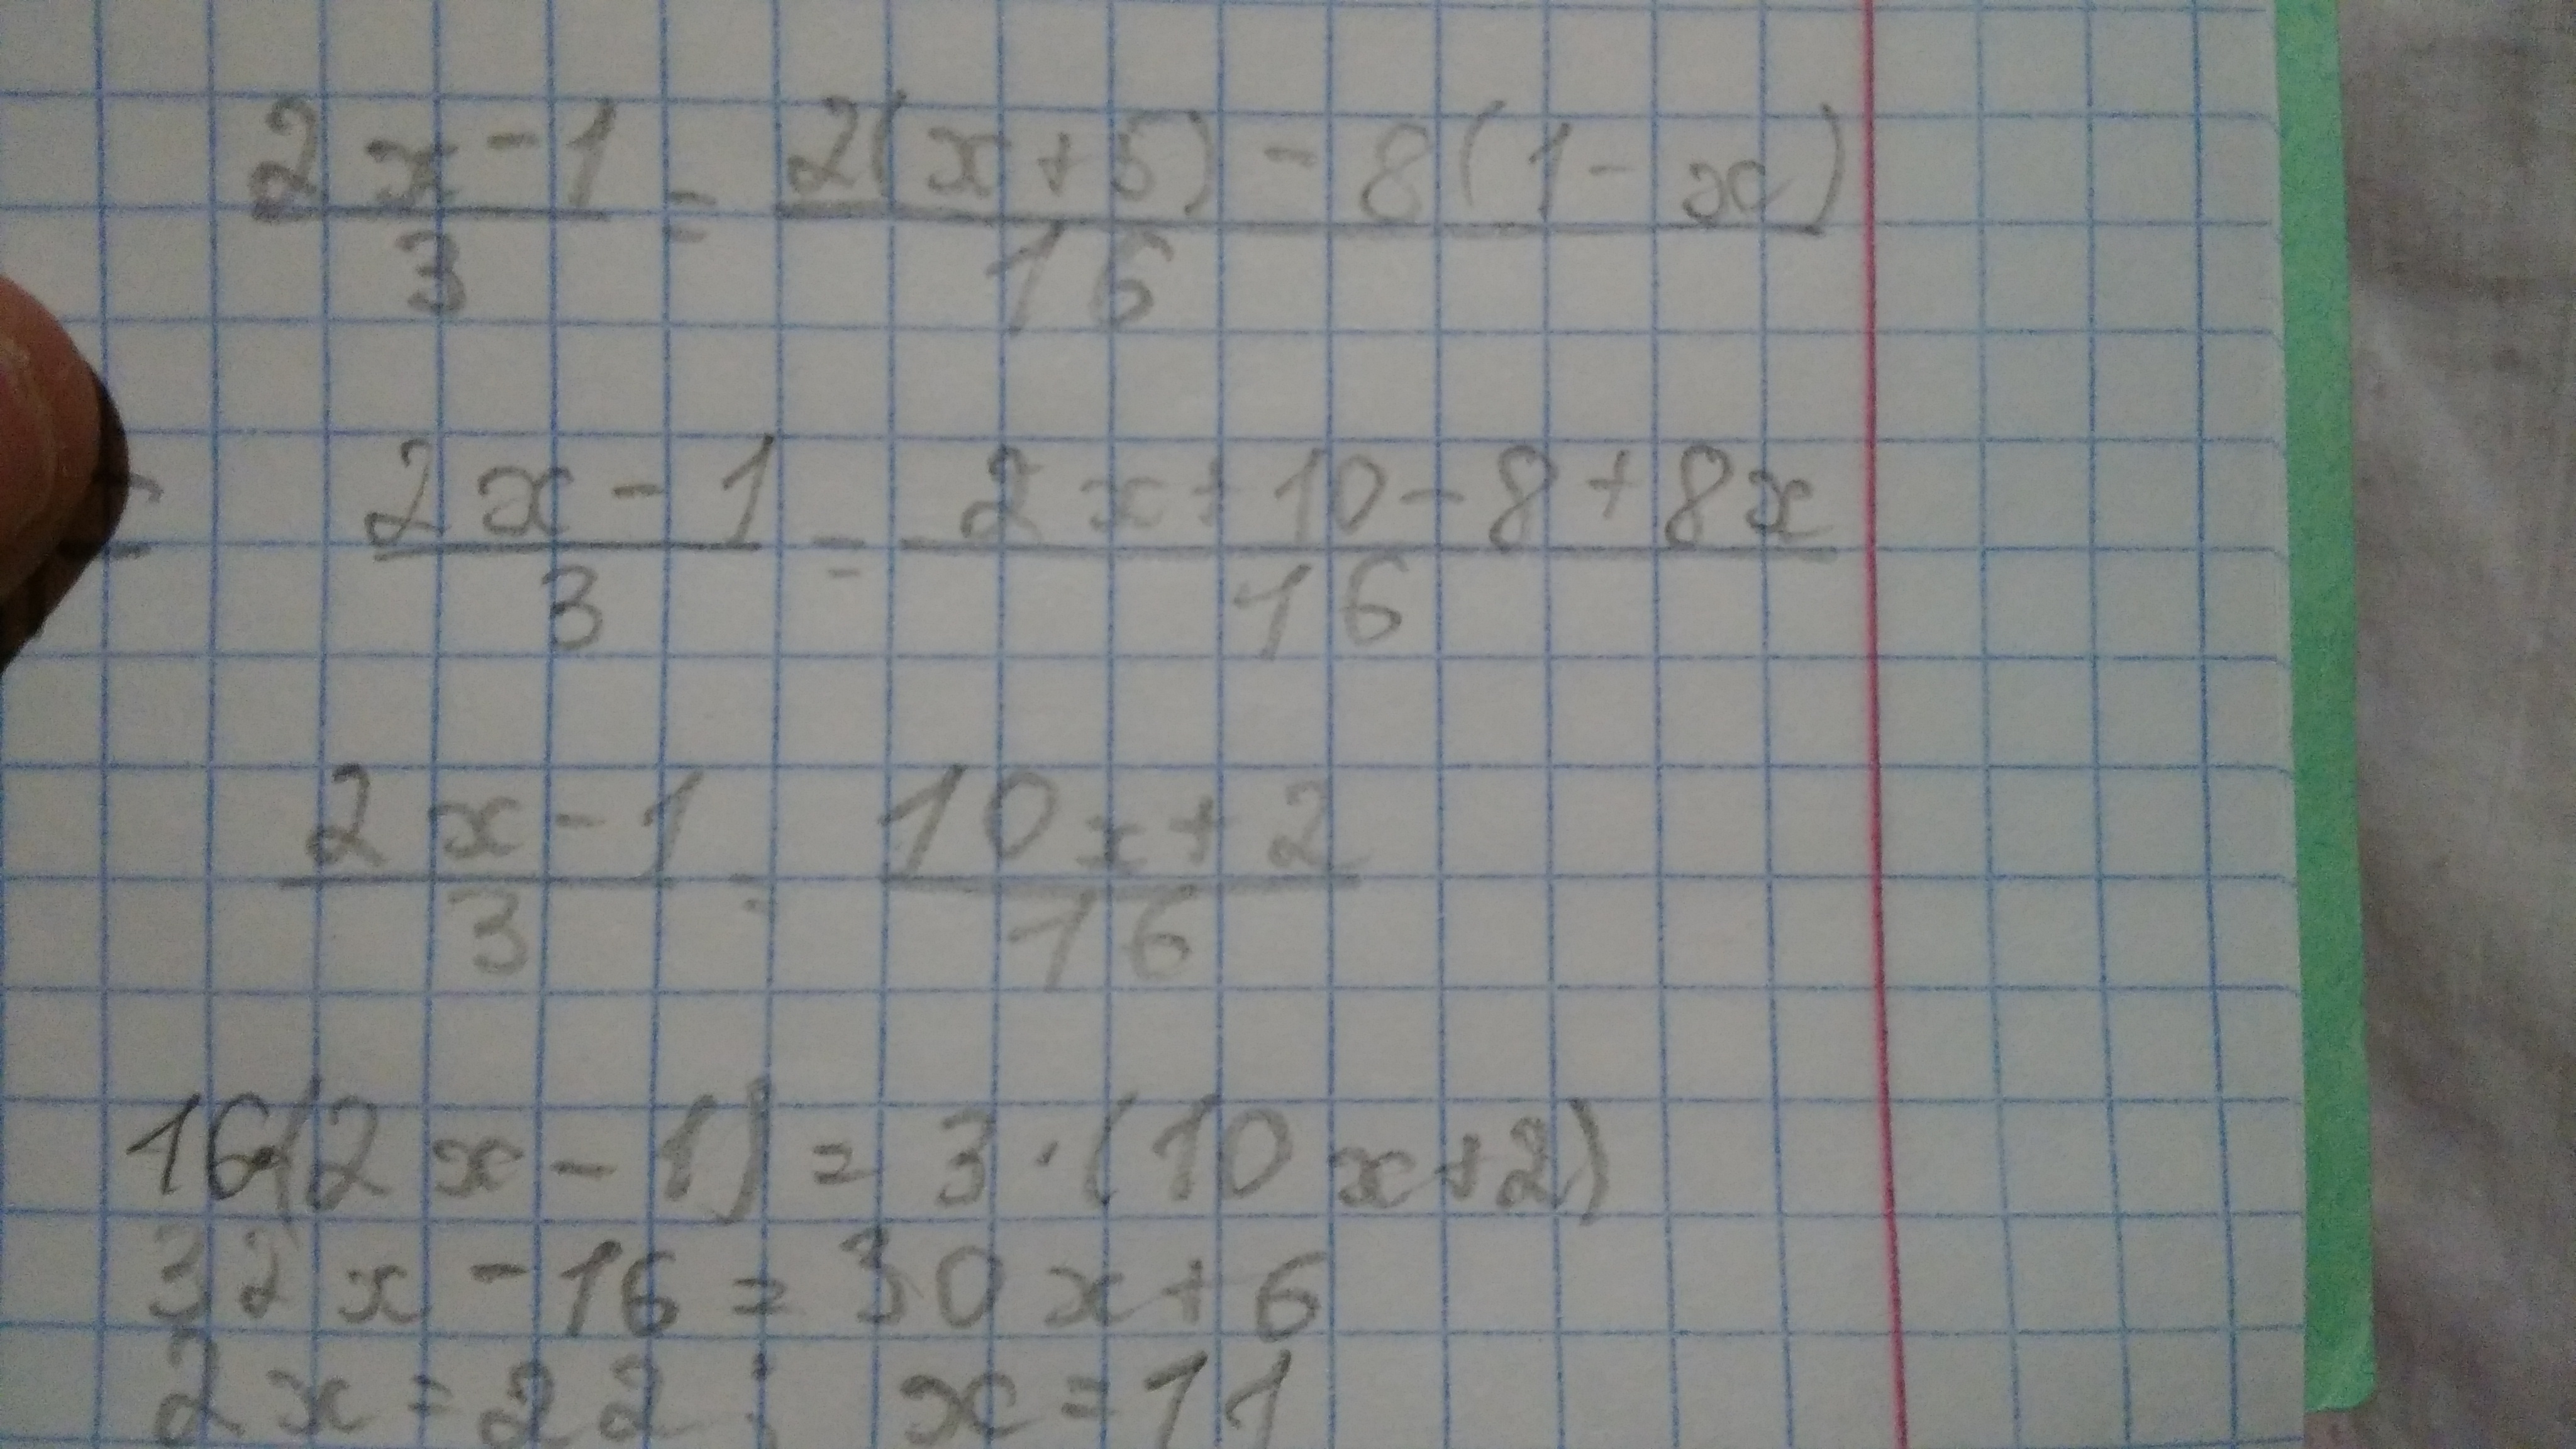 2x-1/3 = 2(x+5)-8(1-x)/16
= 2x-1/3 = 2x+10-8+8x/16
2x-1/3 = 10x+2/16
16(2x-1) = 3·(10x+2)
32x-16=30x+6
2x=22; x=11